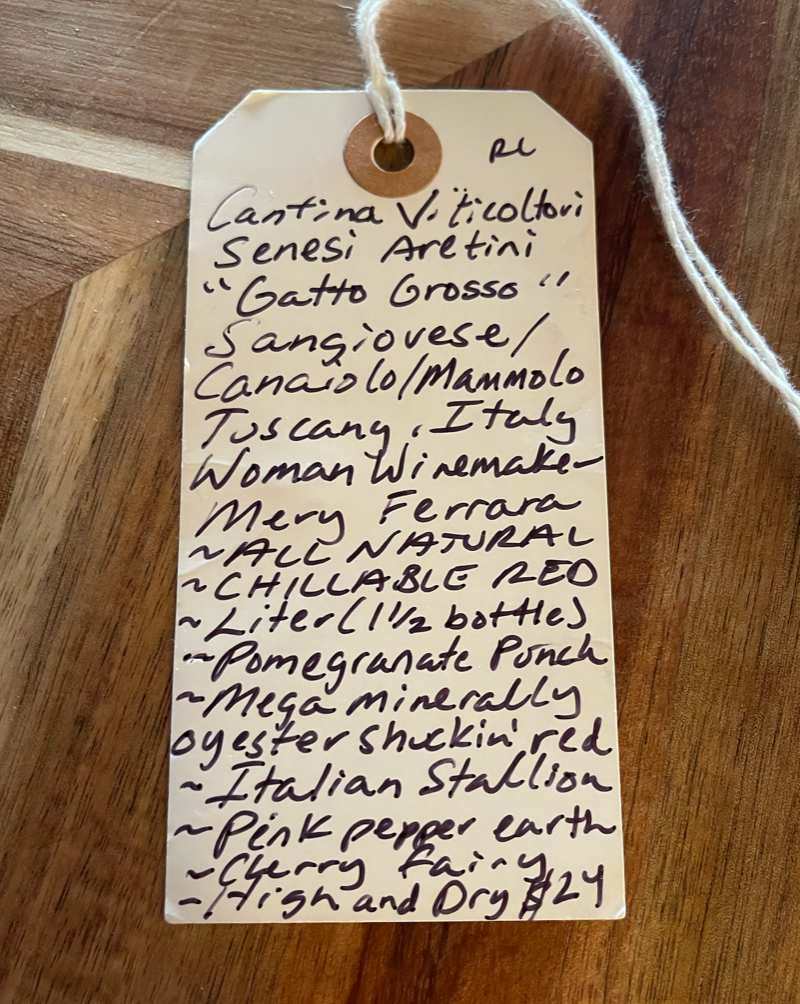 RL
Cantina Viticoltori
Senesi Aretini
"Gatto Grosso"
Sangiovese/
Canaiolo/Mammolo
Tuscany, Italy
Woman Winemaker
Mery Ferrara
~ALL NATURAL
~CHILLABLE RED
~Liter (1 1/2 bottle)
~Pomegranate Punch
~Mega minerally
oyester shuckin' red
~Italian Stallion
~Pink pepper earth
~Cherry Fairy
~High and Dry $24